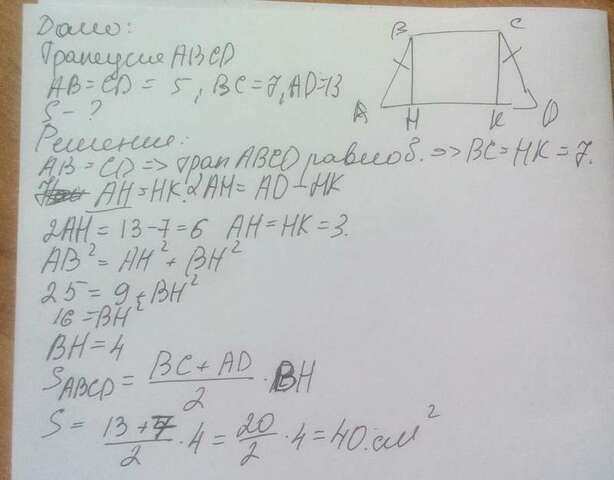 Дано:
Трапеция ABCD
AB=CD = 5, BC=7, AD=13
S - ?
B C
A H K D
Решение:
AB=CD => трап ABCD равноб. => BC=HK=7.
AH=HK. 2AH= AD-HK
2AH= 13-7=6 AH=HK=3.
AB² = AH² + BH²
25 = 9+BH²
16=BH²
BH=4
S ABCD = (BC+AD)/2 · BH
S = (13+7)/2 · 4 = 20/2 · 4 = 40 см²